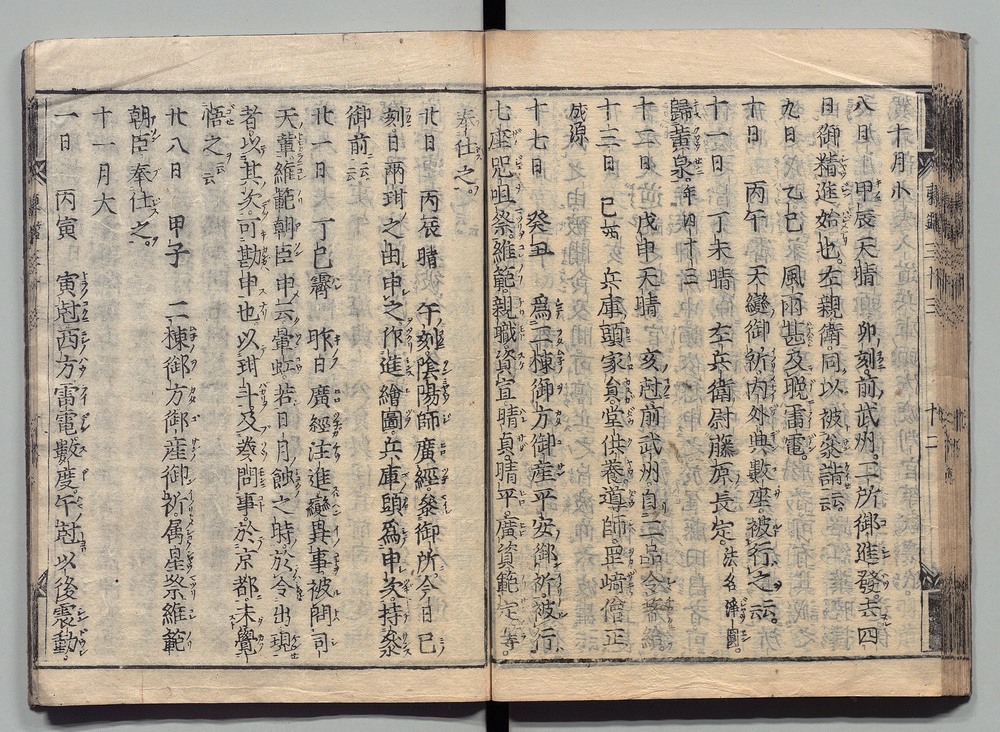 十月小
八日 甲辰 天晴 卯刻前武州二所御進發去四
日御精進始也左親衛同以被參詣云云
九日 乙巳 風雨甚及晩雷電
十日 丙午 天變御祈内外典數座被行之云云
十一日 丁未 晴 左兵衛尉藤原長定法名淨圓
歸黄泉年四十三
十二日 戊申 天晴 亥尅前武州自二品令
十三日 己酉 兵庫頭家負堂供養導師正僧正
成源
十七日 癸丑 爲二棟御方御産平安御祈被行
七座咒咀祭維範親職資宣晴貞晴平廣資範定等
奉仕之
廿日 丙辰 晴 午刻陰陽師廣經參御所今日巳
刻日兩珥之由申之作進繪圖兵庫頭爲申次持參
御前云云
廿一日 丁巳 霽 昨日廣經注進變異事被問司
天輩維範朝臣申云暈虹若日月蝕之時於令出現
者以其次可勘申也以珥斗及奏問事於京都未覺
悟之云云
廿八日 甲子 二棟御方御産御祈属星祭維範
朝臣奉仕之
十一月大
一日 丙寅 寅尅西方雷電數度午尅以後震動